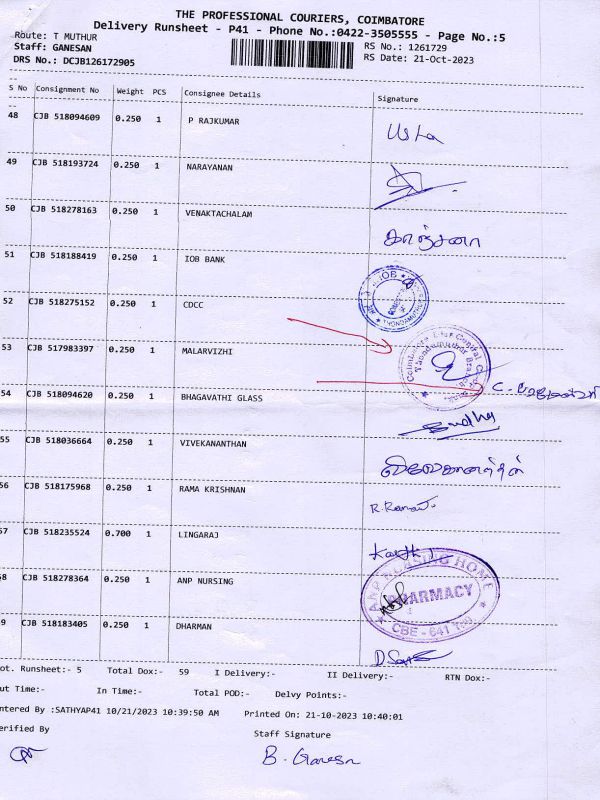 THE PROFESSIONAL COURIERS, COIMBATORE
Delivery Runsheet - P41 - Phone No.:0422-3505555 - Page No.:5
Route: T MUTHUR
RS No.: 1261729
Staff: GANESAN
RS Date: 21-Oct-2023
DRS No.: DCJB126172905
S No Consignment No Weight PCS Consignee Details Signature
48 CJB 518094609 0.250 1 P RAJKUMAR Usha
49 CJB 518193724 0.250 1 NARAYANAN
50 CJB 518278163 0.250 1 VENAKTACHALAM காஞ்சனா
51 CJB 518188419 0.250 1 IOB BANK IOB
52 CJB 518275152 0.250 1 CDCC
53 CJB 517983397 0.250 1 MALARVIZHI C.
54 CJB 518094620 0.250 1 BHAGAVATHI GLASS Sudha
55 CJB 518036664 0.250 1 VIVEKANANTHAN
56 CJB 518175968 0.250 1 RAMA KRISHNAN
57 CJB 518235524 0.700 1 LINGARAJ
58 CJB 518278364 0.250 1 ANP NURSING ANP NURSING HOME PHARMACY CBE - 641
9 CJB 518183405 0.250 1 DHARMAN
ot. Runsheet:- 5 Total Dox:- 59 I Delivery:- II Delivery:- RTN Dox:-
ut Time:- In Time:- Total POD:- Delvy Points:-
ntered By :SATHYAP41 10/21/2023 10:39:50 AM Printed On: 21-10-2023 10:40:01
erified By Staff Signature
B. Ganesan